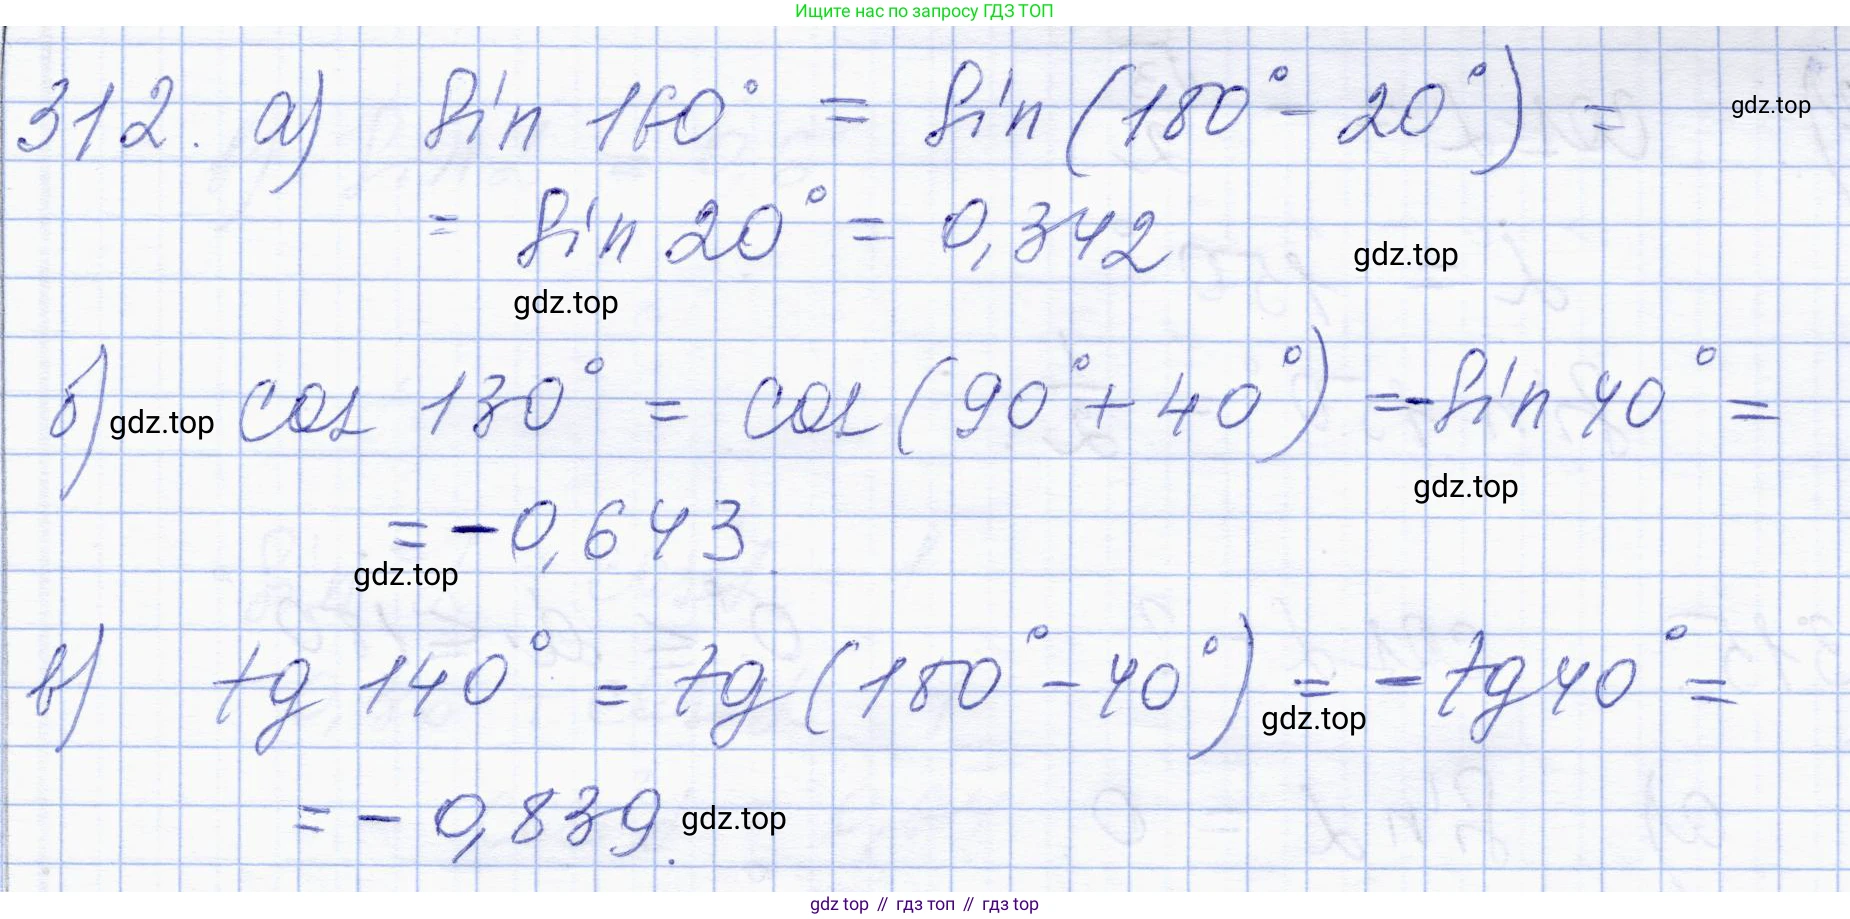 Ищите нас по запросу ГДЗ ТОП
312. а) sin 160° = sin (180° - 20°) = gdz.top
= sin 20° = 0,342 gdz.top
gdz.top
б) gdz.top cos 130° = cos (90° + 40°) = - sin 40° =
gdz.top
= - 0,643.
gdz.top
в) tg 140° = tg (180° - 40°) = - tg 40° =
gdz.top
= - 0,839. gdz.top
gdz top // гдз топ // гдз top